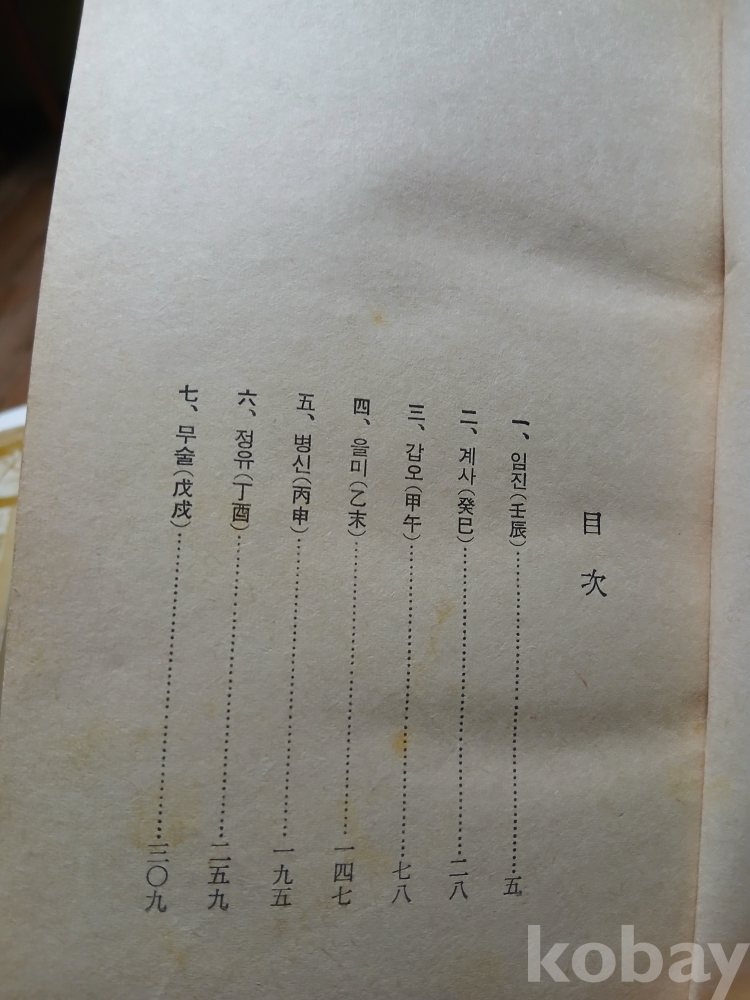 目次
一、임진(壬辰)……………五
二、계사(癸巳)……………二八
三、갑오(甲午)……………七八
四、을미(乙末)……………一四七
五、병신(丙申)……………一九五
六、정유(丁酉)……………二五九
七、무술(戊戌)……………三〇九
kobay